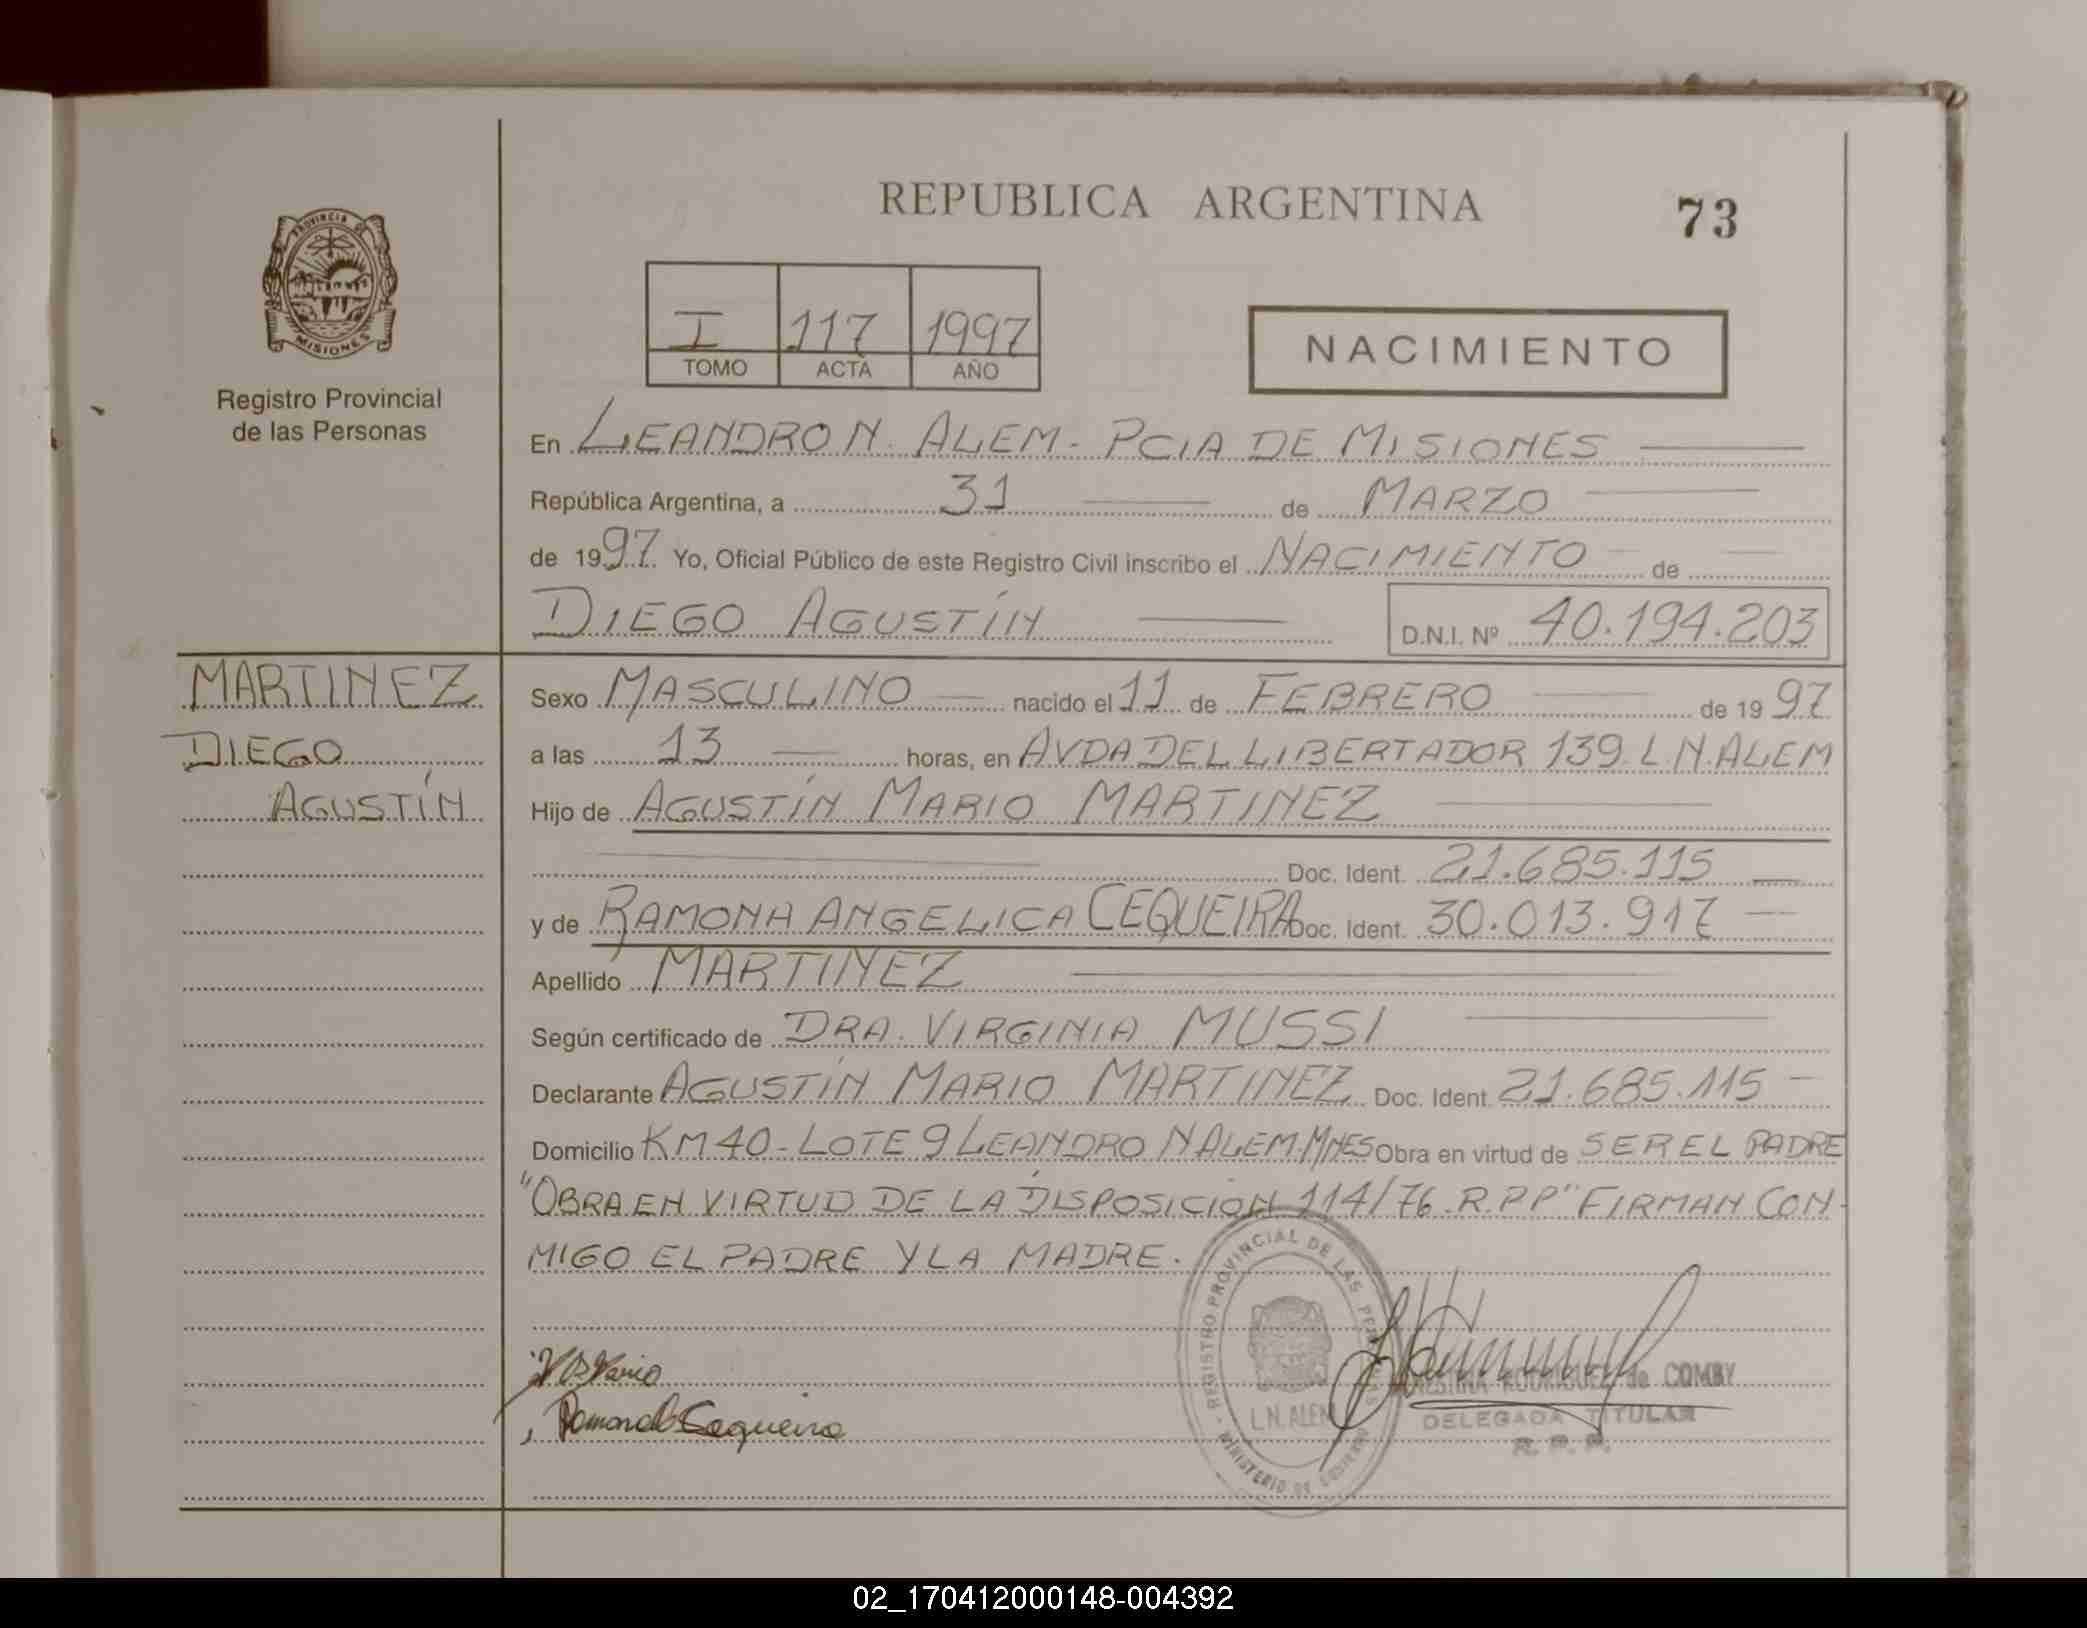 REPUBLICA ARGENTINA
73
PROVINCIA DE
MISIONES
Registro Provincial
de las Personas
I 117 1997
TOMO ACTA AÑO
NACIMIENTO
En LEANDRO N. ALEM - PCIA DE MISIONES
República Argentina, a 31 de MARZO
de 1997. Yo, Oficial Público de este Registro Civil inscribo el NACIMIENTO de
DIEGO AGUSTÍN D.N.I. Nº 40.194.203
MARTINEZ
DIEGO
AGUSTÍN
Sexo MASCULINO nacido el 11 de FEBRERO de 1997
a las 13 horas, en AVDA DEL LIBERTADOR 139. L.N. ALEM
Hijo de AGUSTÍN MARIO MARTINEZ
Doc. Ident. 21.685.115
y de RAMONA ANGELICA CEQUEIRA Doc. Ident. 30.013.917
Apellido MARTINEZ
Según certificado de DRA. VIRGINIA MUSSI
Declarante AGUSTÍN MARIO MARTINEZ Doc. Ident. 21.685.115 -
Domicilio KM 40 - LOTE 9 LEANDRO N ALEM. MNES Obra en virtud de SER EL PADRE
"OBRA EN VIRTUD DE LA DISPOSICIÓN 114/76 R.P.P" FIRMAN CON-
MIGO EL PADRE Y LA MADRE.
REGISTRO PROVINCIAL DE LAS PERSONAS
L.N. ALEM
MINISTERIO DE GOBIERNO
Ramona Cequeira
RODRIGUEZ de COMBY
DELEGADA TITULAR
R. P. P.
02_170412000148-004392